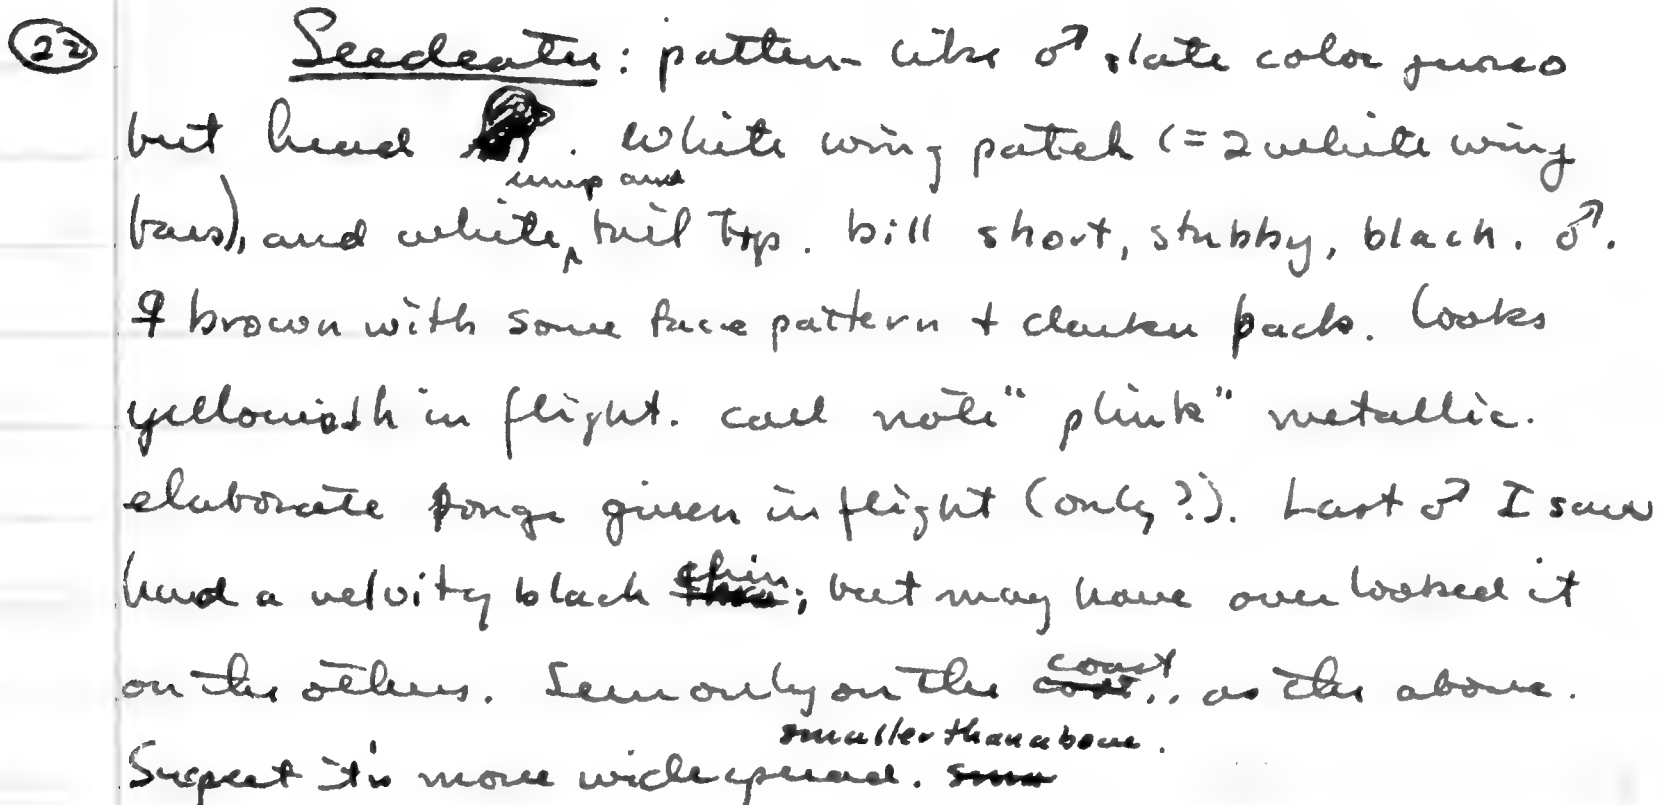 22 Seedeater: pattern like ♂ slate color junco
but head . White wing patch (= 2 white wing
bars), and white rump and tail top. bill short, stubby, black. ♂.
♀ brown with some face pattern + darker back. Looks
yellowish in flight. call note "plink" metallic.
elaborate songs given in flight (only?). Last ♂ I saw
had a velvity black chin; but may have overlooked it
on the others. Seen only on the coast, as the above.
Suspect it's more widespread. smaller than above.